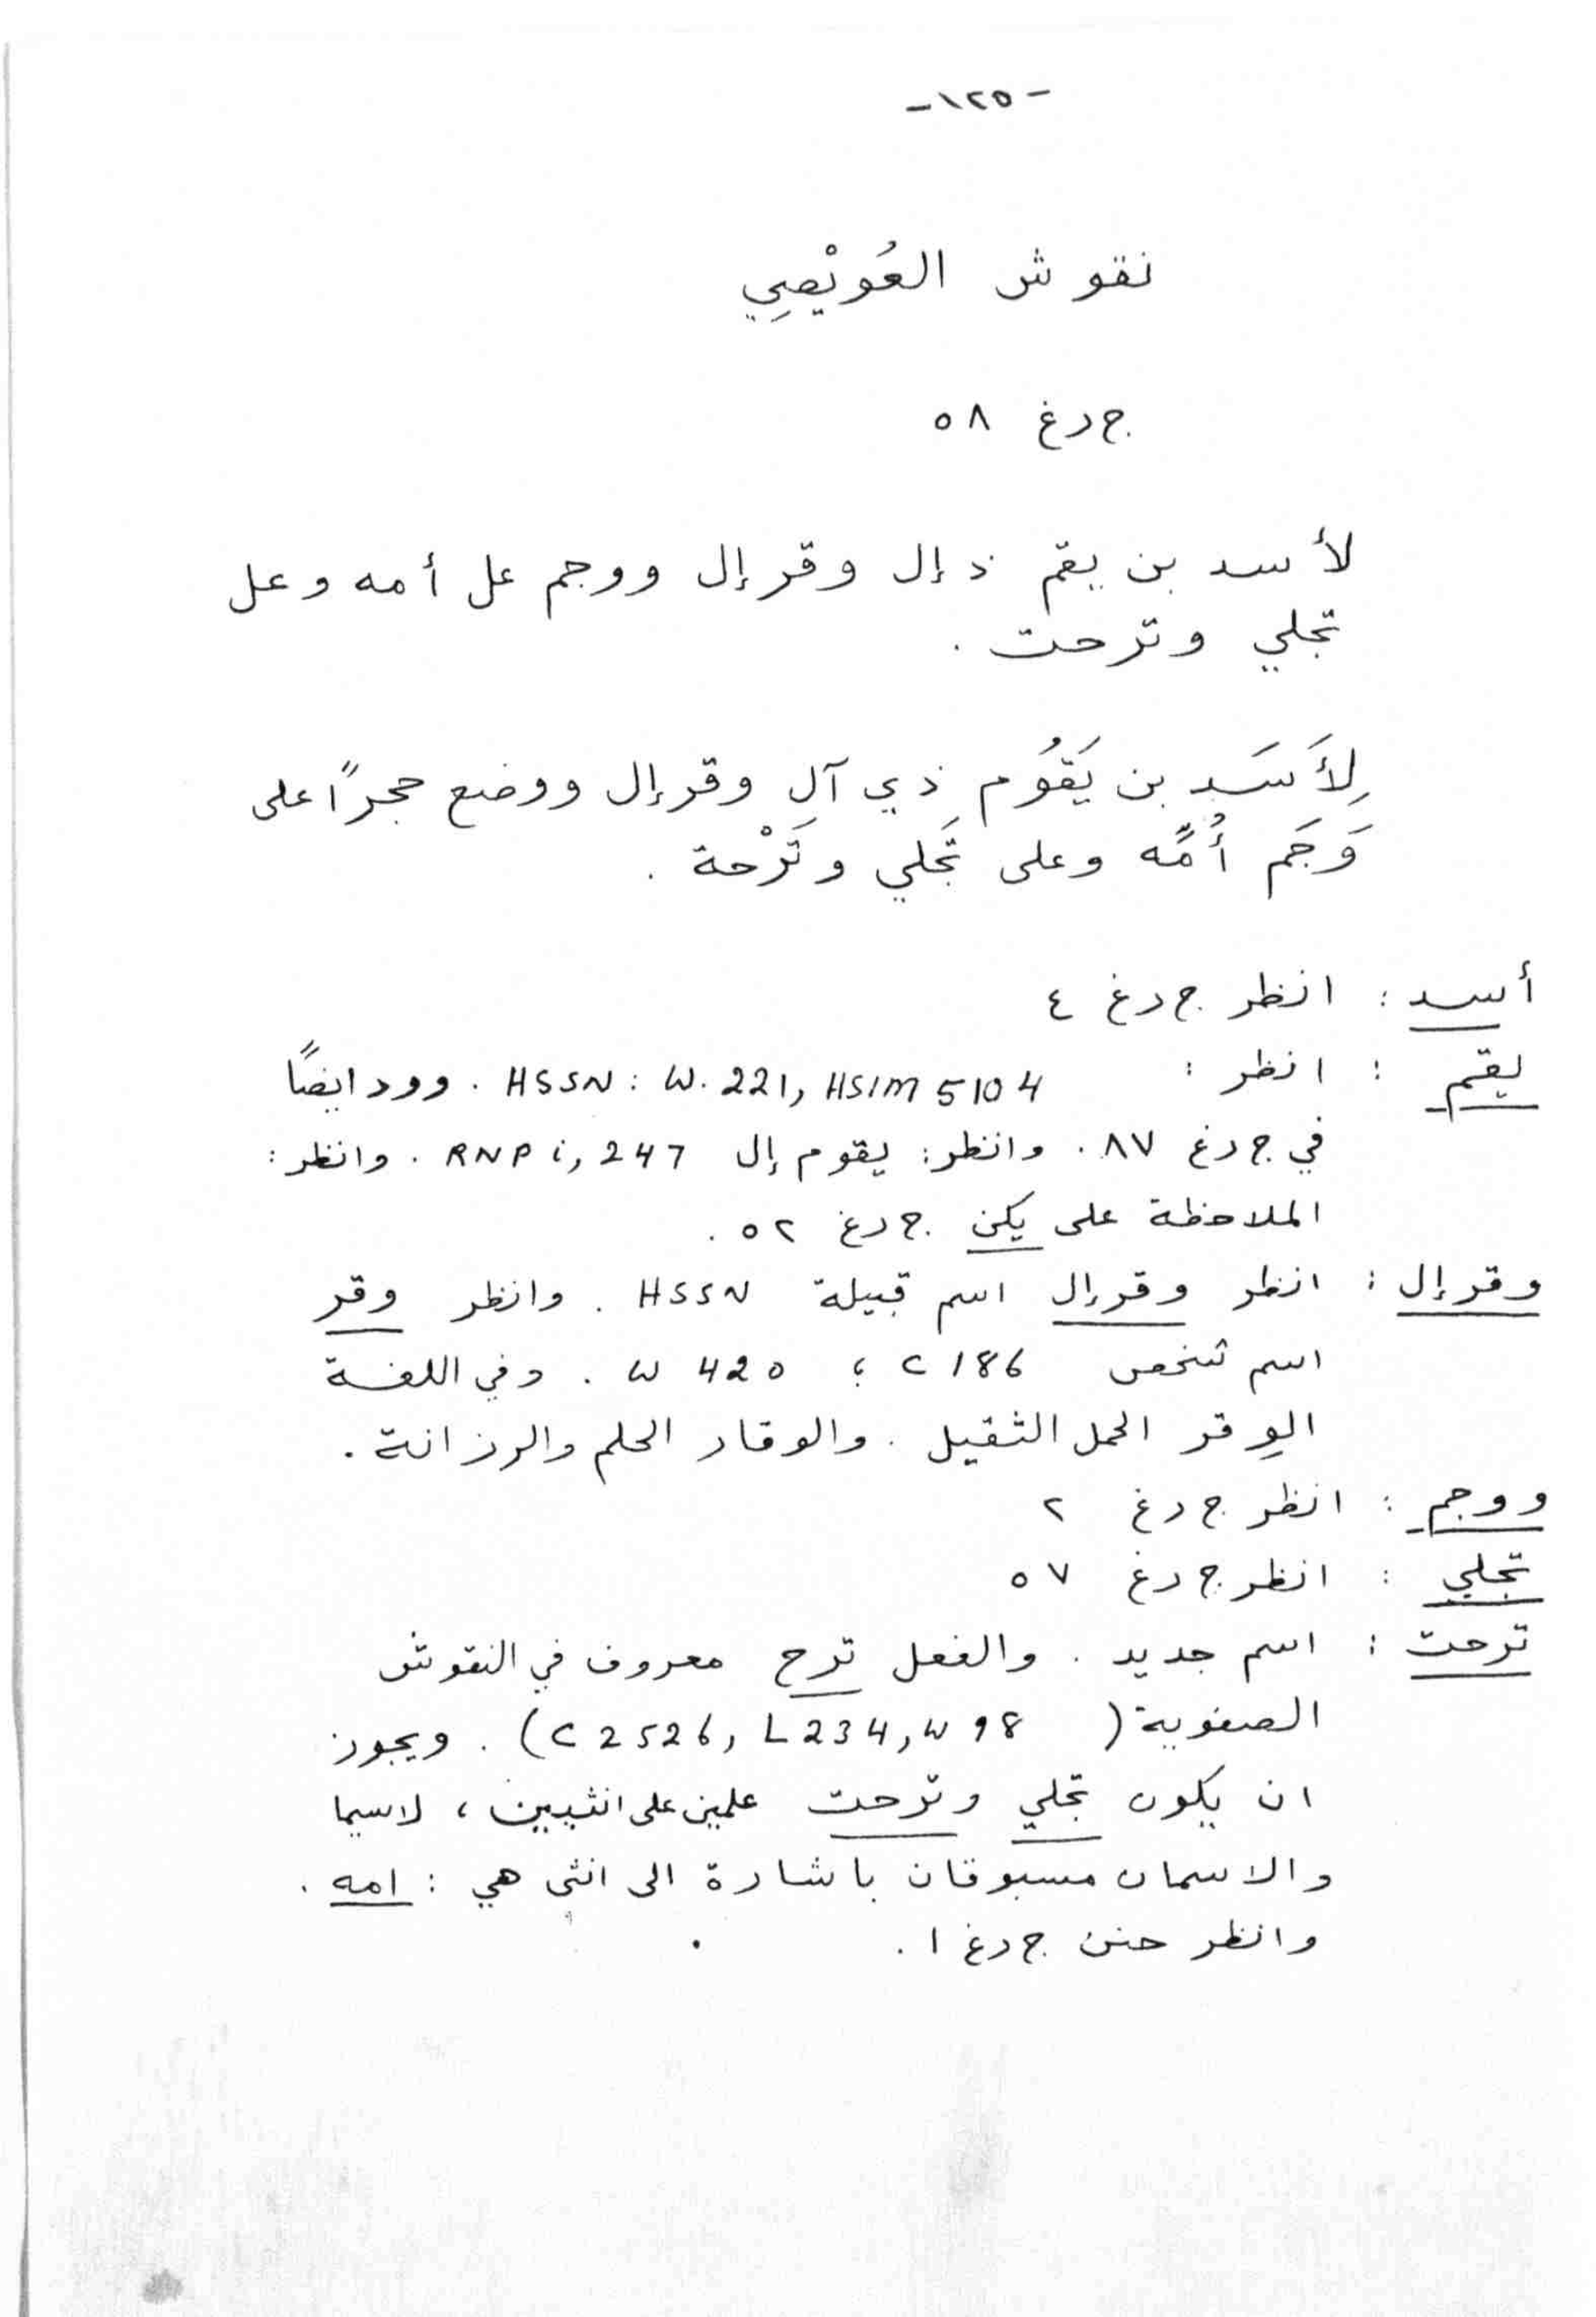 -١٢٥-
نقوش العُويْصِي
ج دغ ٥٨
لأسد بن يقم ذ إل وقر إل ووجم عل أمه وعل
تجلي وترحت .
لِأَسَد بن يَقُوم ذي آلِ وقر إل ووضع حجراً على
وَجَم أُمِّه وعلى تَجلي وتَرْحة .
أسد : انظر ج دغ ٤
يقم : انظر : HSSN : W. 221, HSIM 5104 . وورد ايضاً
في ج دغ ٨٧ . وانظر : يقوم إل RNP i, 247 . وانظر :
الملاحظة على يكن ج دغ ٥٢ .
وقر إل : انظر وقر إل اسم قبيلة HSSN . وانظر وقر
اسم شخص C 186 ؛ W 420 . وفي اللغة
الوِقر الحمل الثقيل . والوقار الحلم والرزانة .
ووجم : انظر ج دغ ٢
تجلي : انظر ج دغ ٥٧
ترحت : اسم جديد . والفعل ترح معروف في النقوش
الصفوية ( C 2526, L 234, W 98 ) . ويجوز
ان يكون تجلي وترحت علمين على انثيين ، لاسيما
والاسمان مسبوقان باشارة الى انثى هي : امه .
وانظر حنن ج دغ ١ .